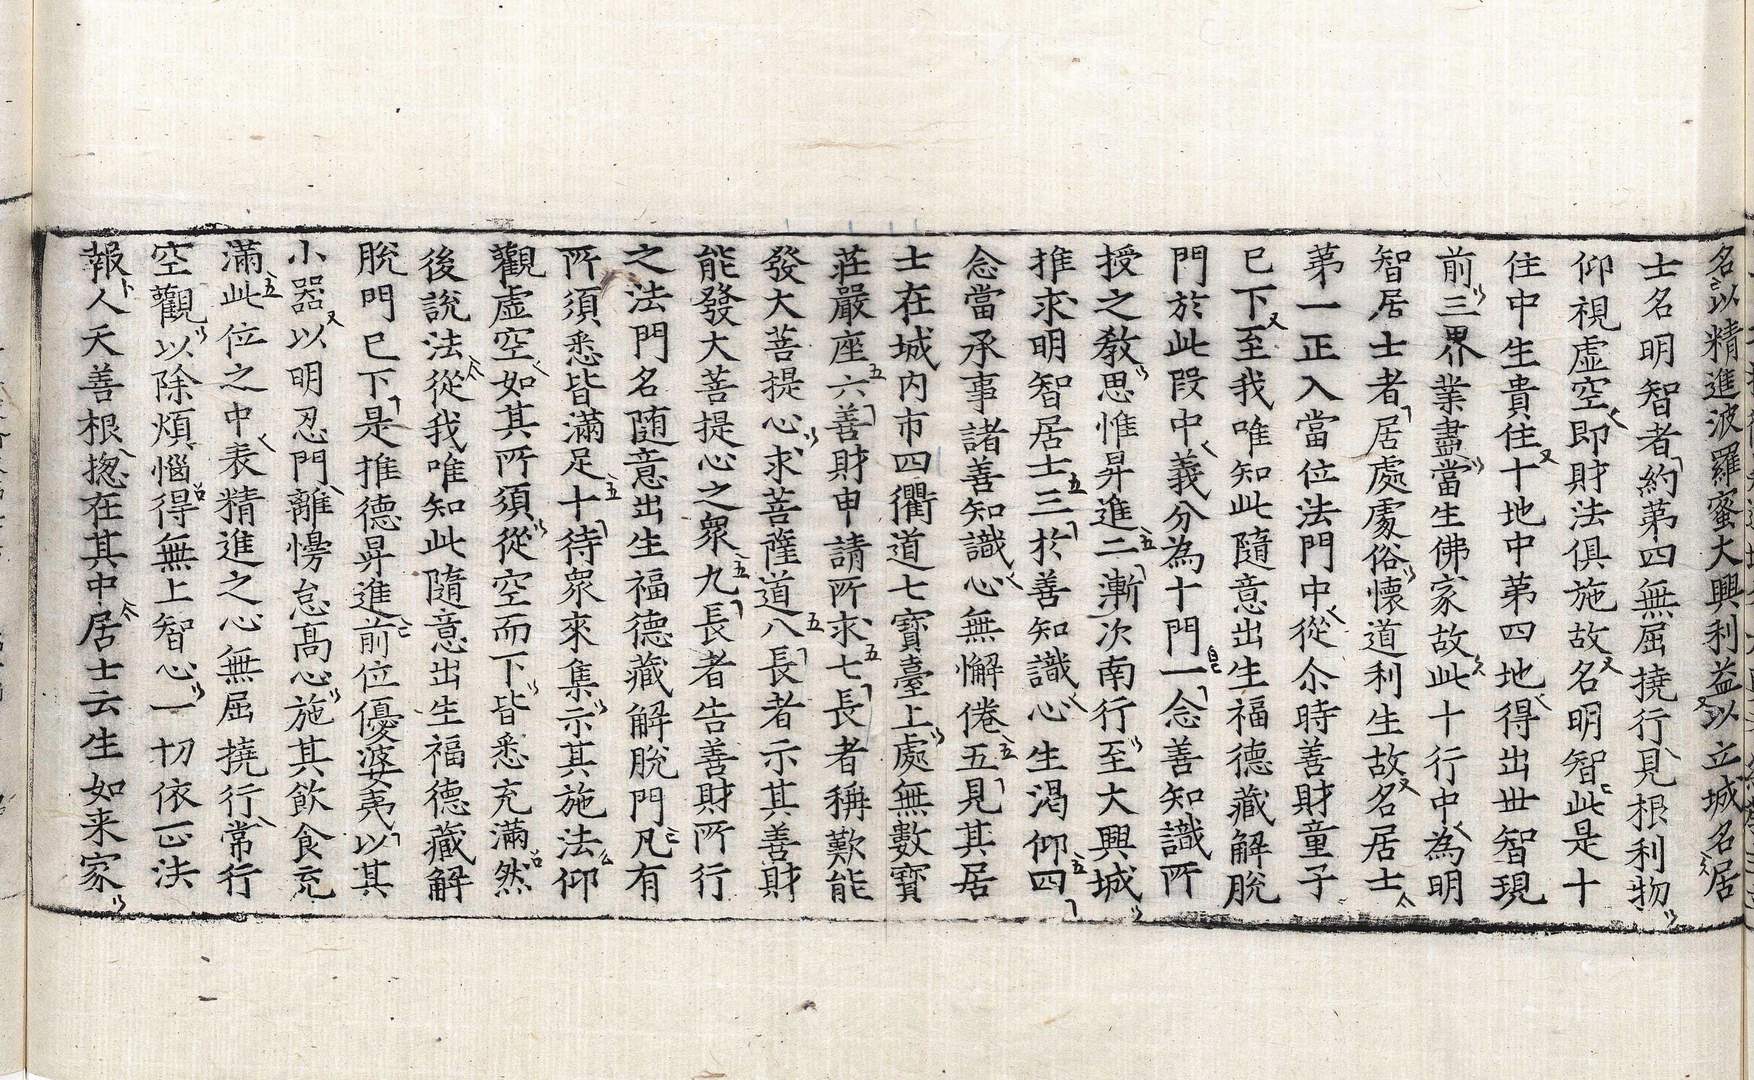 名以精進波羅蜜大興利益以立城名居
士名明智者約第四無屈撓行見根利物
仰視虛空即財法俱施故名明智此是十
住中生貴住十地中第四地得出世智現
前三界業盡當生佛家故此十行中為明
智居士者居處處俗懷道利生故名居士
第一正入當位法門中從尒時善財童子
已下至我唯知此隨意出生福德藏解脫
門於此段中義分為十門一念善知識所
授之教思惟昇進二漸次南行至大興城
推求明智居士三於善知識心生渴仰四
念當承事諸善知識心無懈倦五見其居
士在城內市四衢道七寶臺上處無數寶
莊嚴座六善財申請所求七長者稱歎能
發大菩提心求菩薩道八長者示其善財
能發大菩提心之衆九長者告善財所行
之法門名隨意出生福德藏解脫門凡有
所須悉皆滿足十待衆來集示其施法仰
觀虛空如其所須從空而下皆悉充滿然
後說法從我唯知此隨意出生福德藏解
脫門已下是推德昇進前位優婆夷以其
小器以明忍門離慢怠高心施其飲食充
滿此位之中表精進之心無屈撓行常行
空觀以除煩惱得無上智心一切依正法
報人天善根揔在其中居士云生如来家